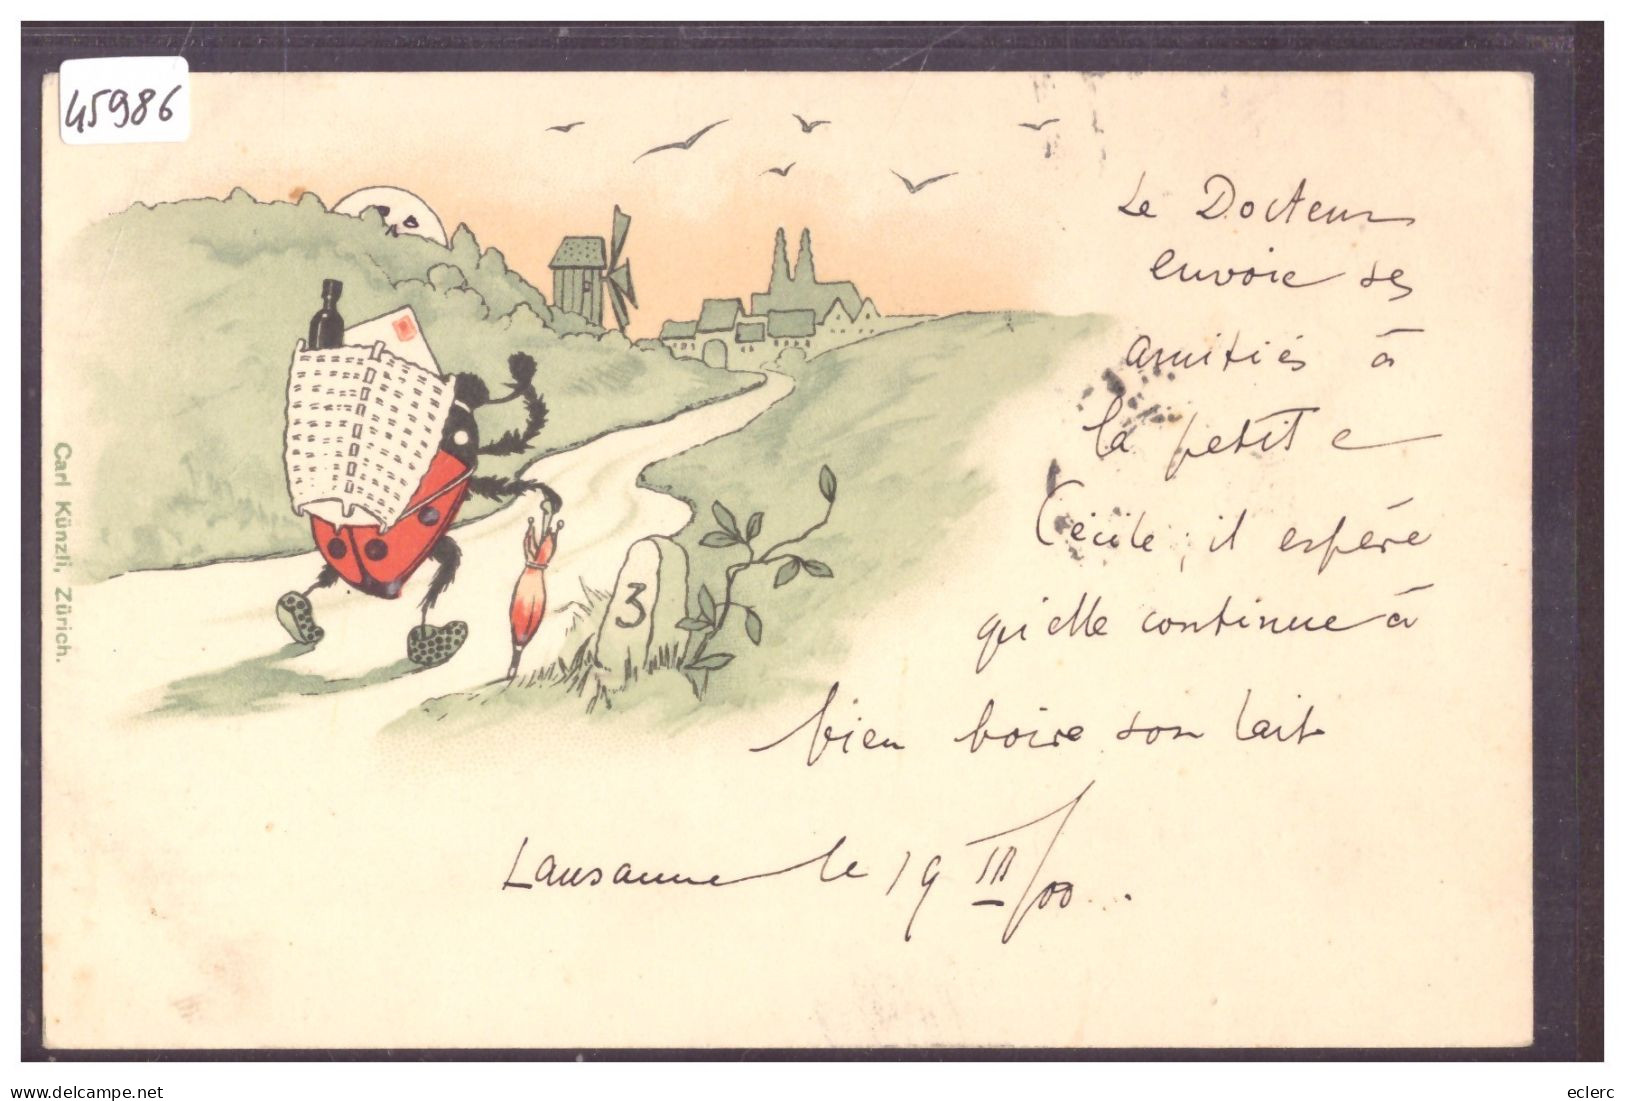 45986
Le Docteur
envoie ses
amitiés à
la petite
Cécile, il espère
qu'elle continue à
bien boire son lait
Lausanne le 19 III/00.
3
Carl Künzli, Zürich.
www.delcampe.net
eclerc